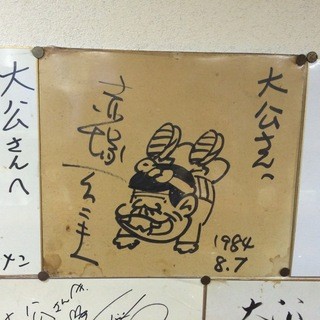 大公さんへ
赤塚不二夫
1984
8.7
大公さんへ
メン
大公さん
大公